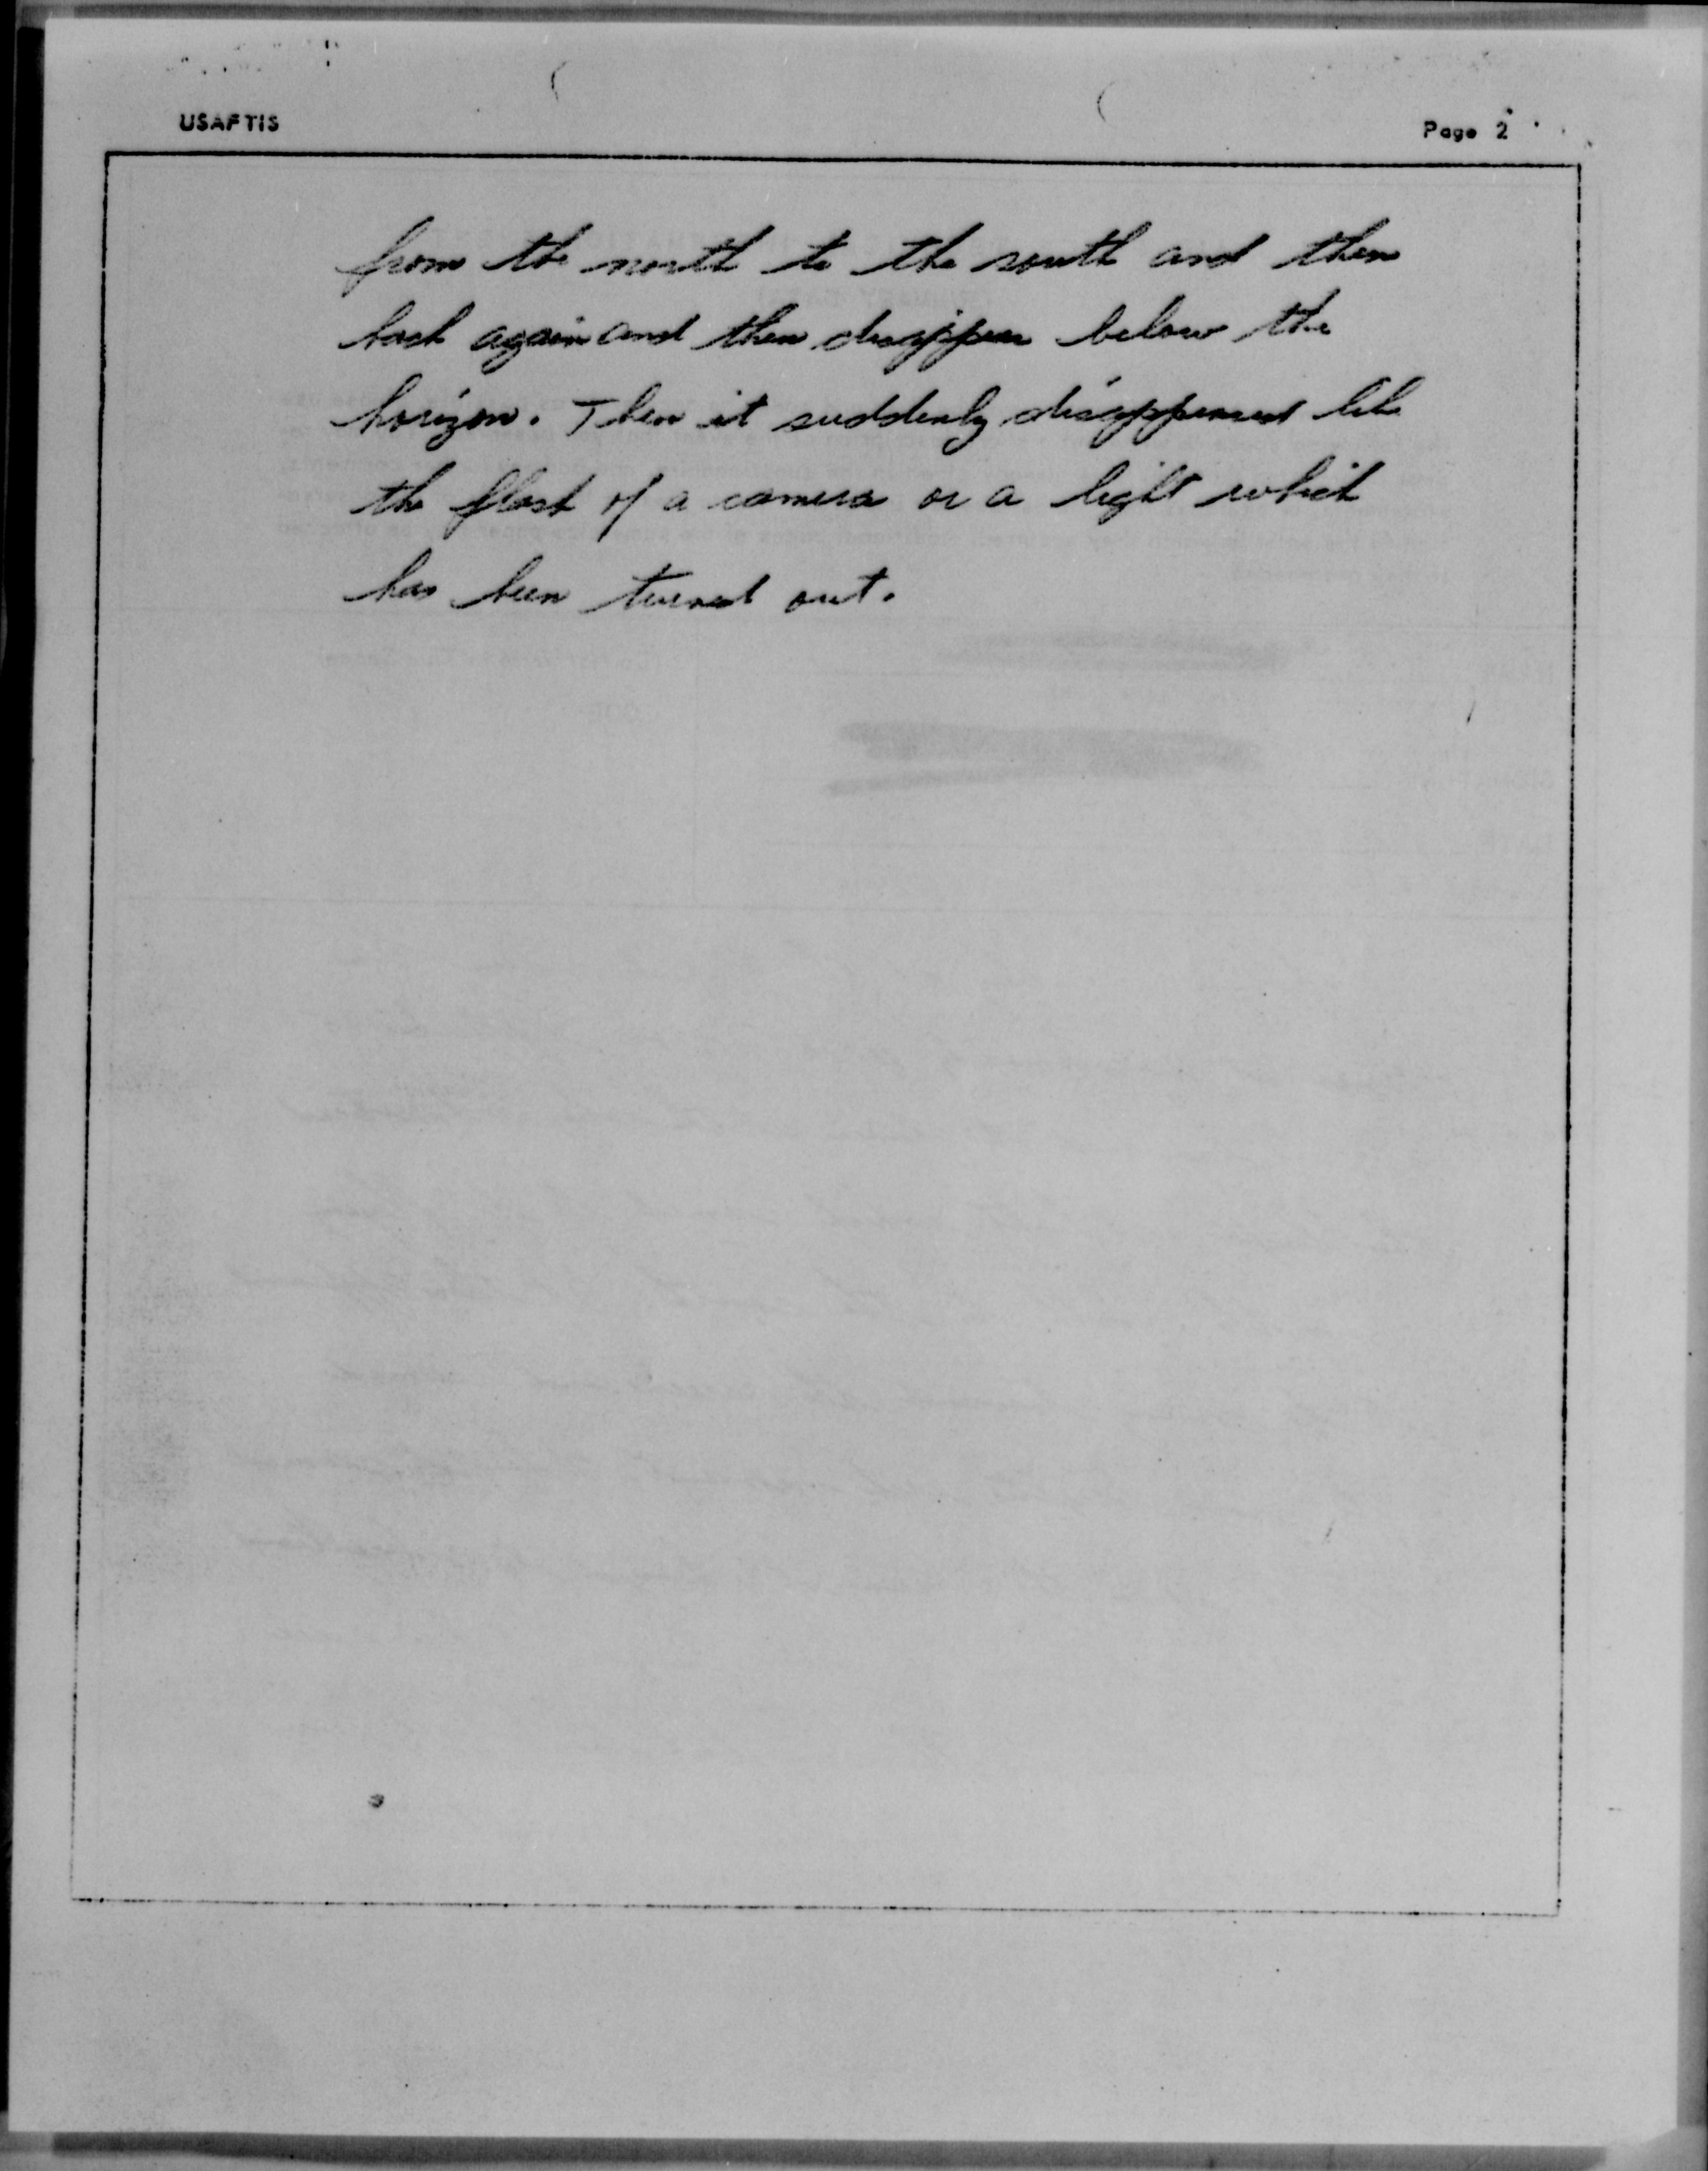 USAF TIS
Page 2
from the north to the south and then
back again and then disappear below the
horizon. Then it suddenly disappeared like
the flash of a camera or a light which
has been turned out.